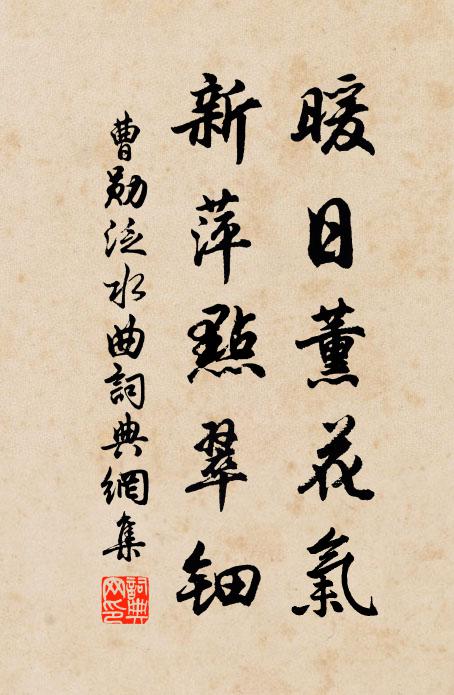 暖日薰花氣
新萍點翠鈿
曹勛泛水曲詞典網集
詞典網印